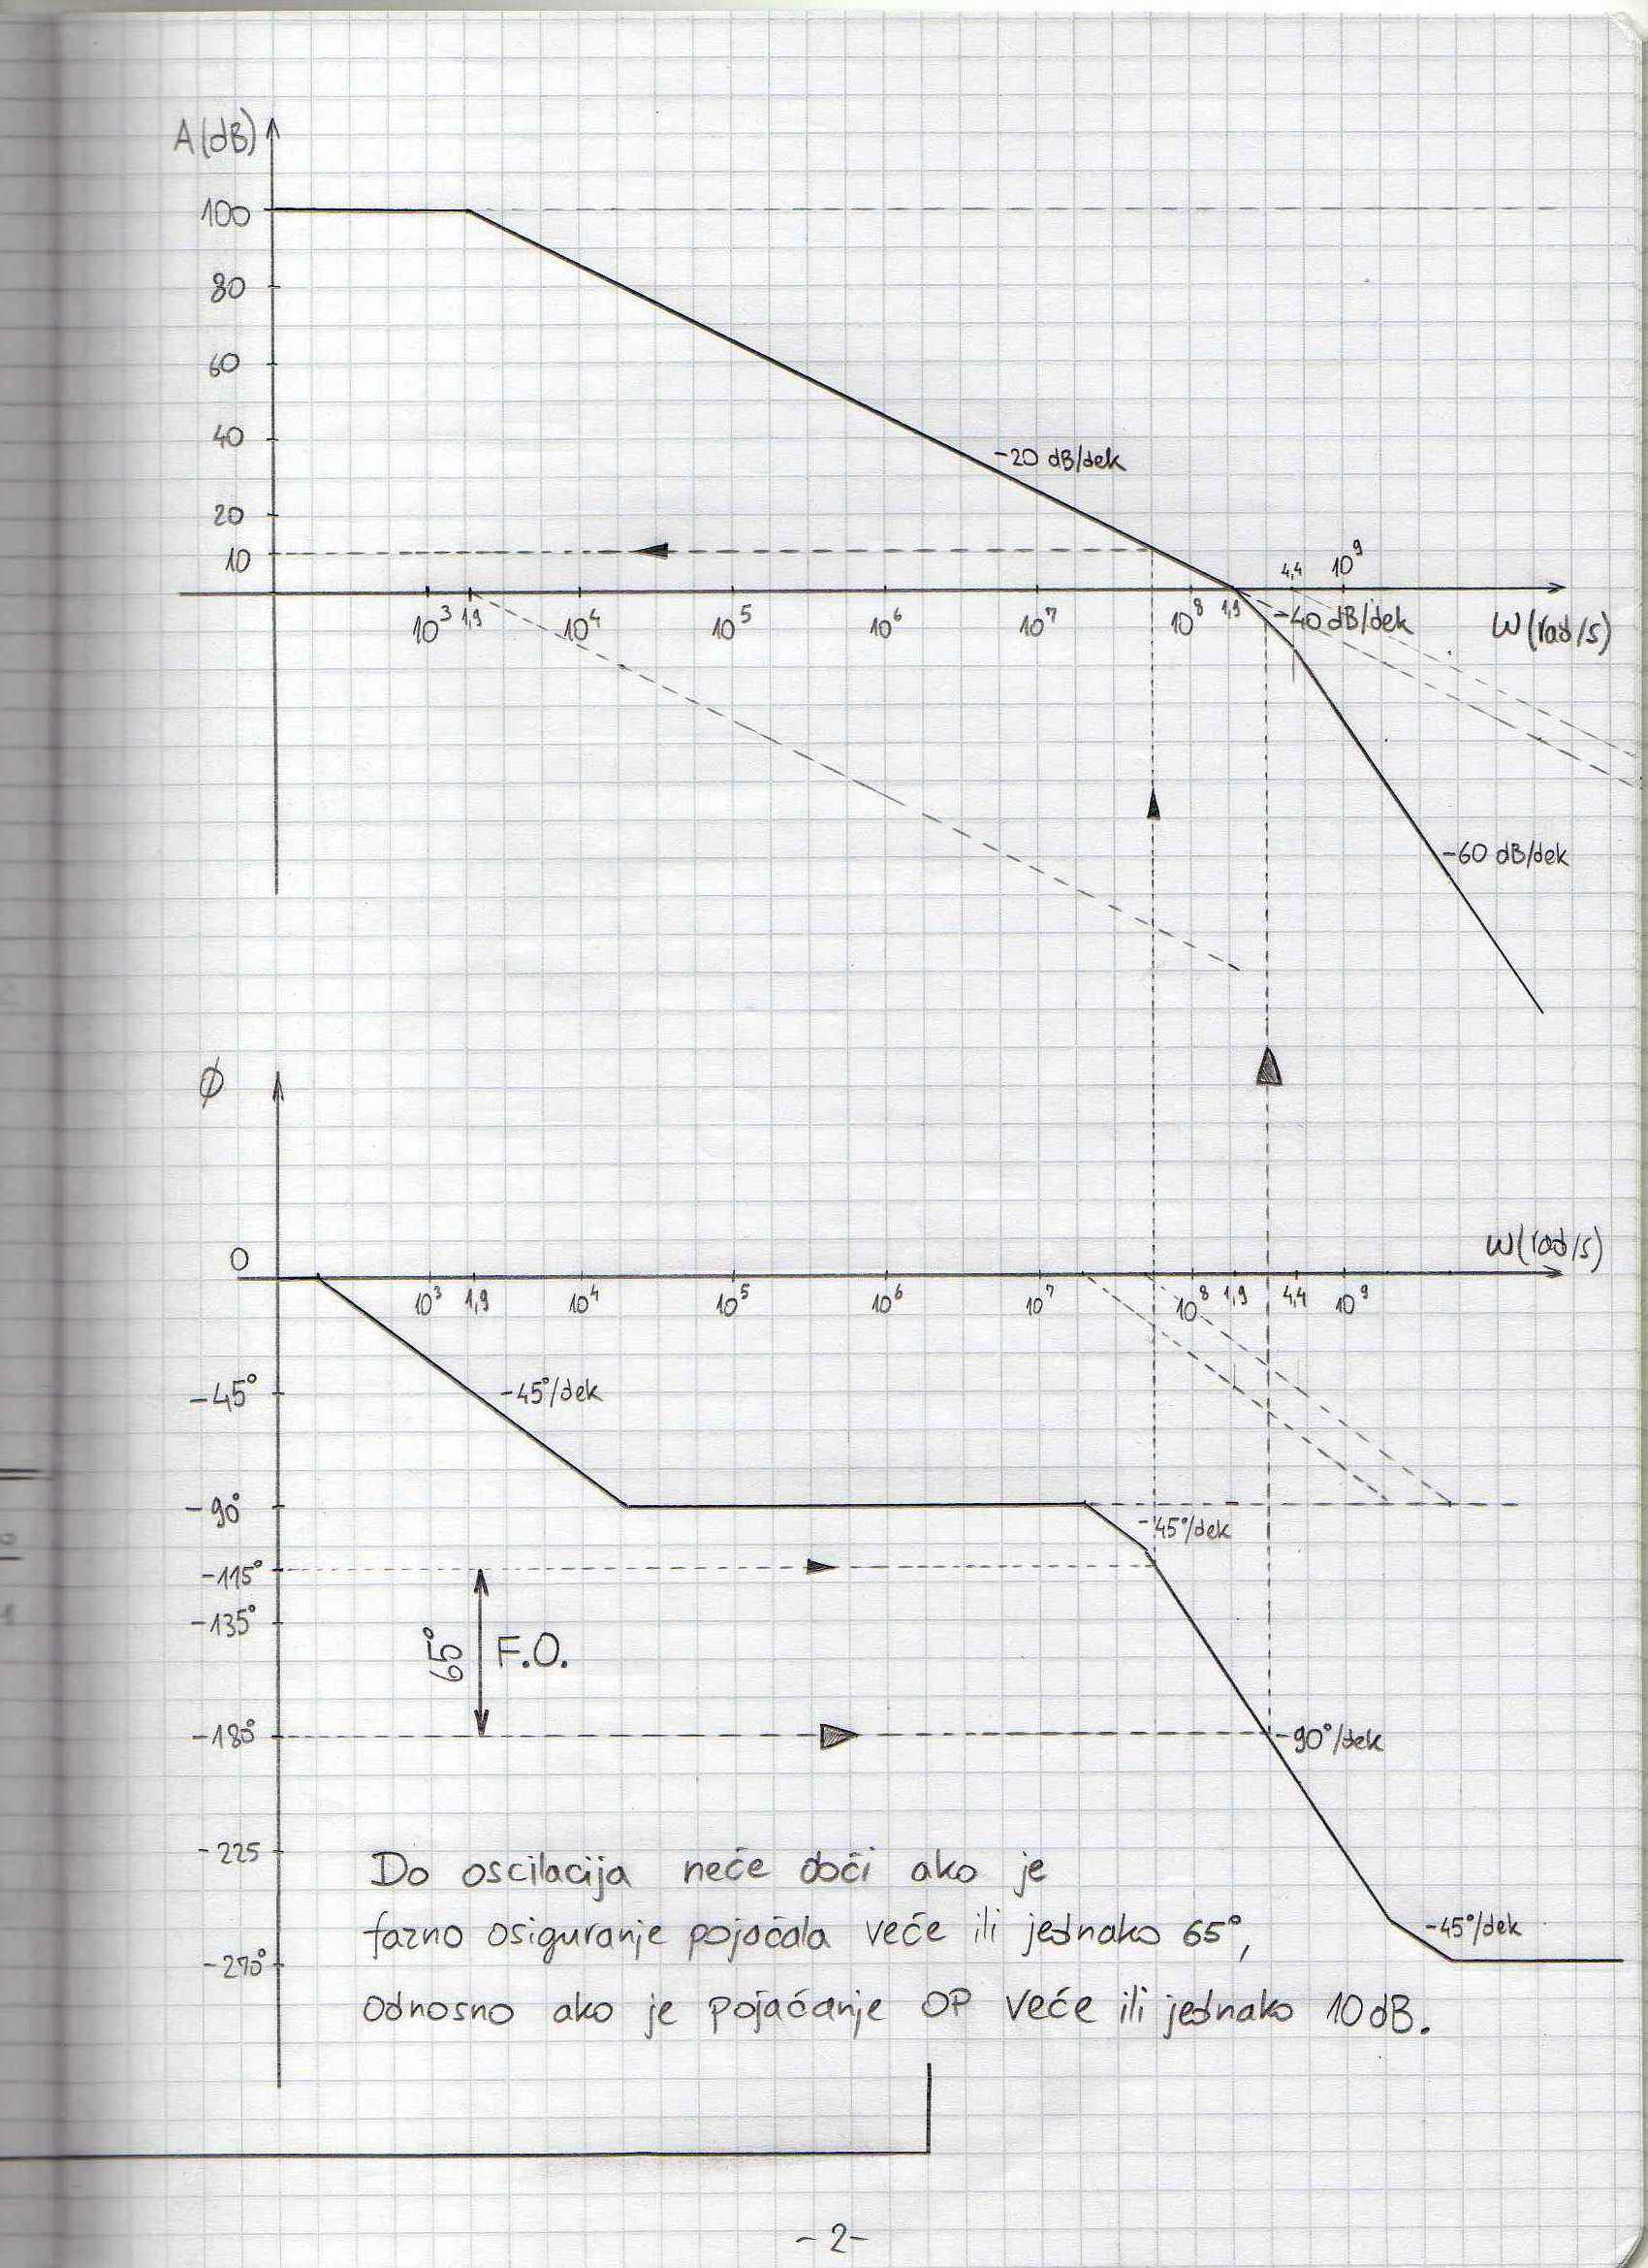 A(dB)
100
80
60
40
20
10
-20 dB/dek
4,4 10⁹
10³ 1,9 10⁴ 10⁵ 10⁶ 10⁷ 10⁸ 1,9 -40 dB/dek ω(rad/s)
-60 dB/dek
ϕ
0
ω(rad/s)
10³ 1,9 10⁴ 10⁵ 10⁶ 10⁷ 10⁸ 1,9 4,4 10⁹
-45°
-45°/dek
-90°
-45°/dek
-115°
-135°
65° F.O.
-180°
-90°/dek
-225
-270°
-45°/dek
Do oscilacija neće doči ako je
fazno osiguranje pojačala veće ili jednako 65°,
odnosno ako je pojaćanje OP veće ili jednako 10 dB.
-2-